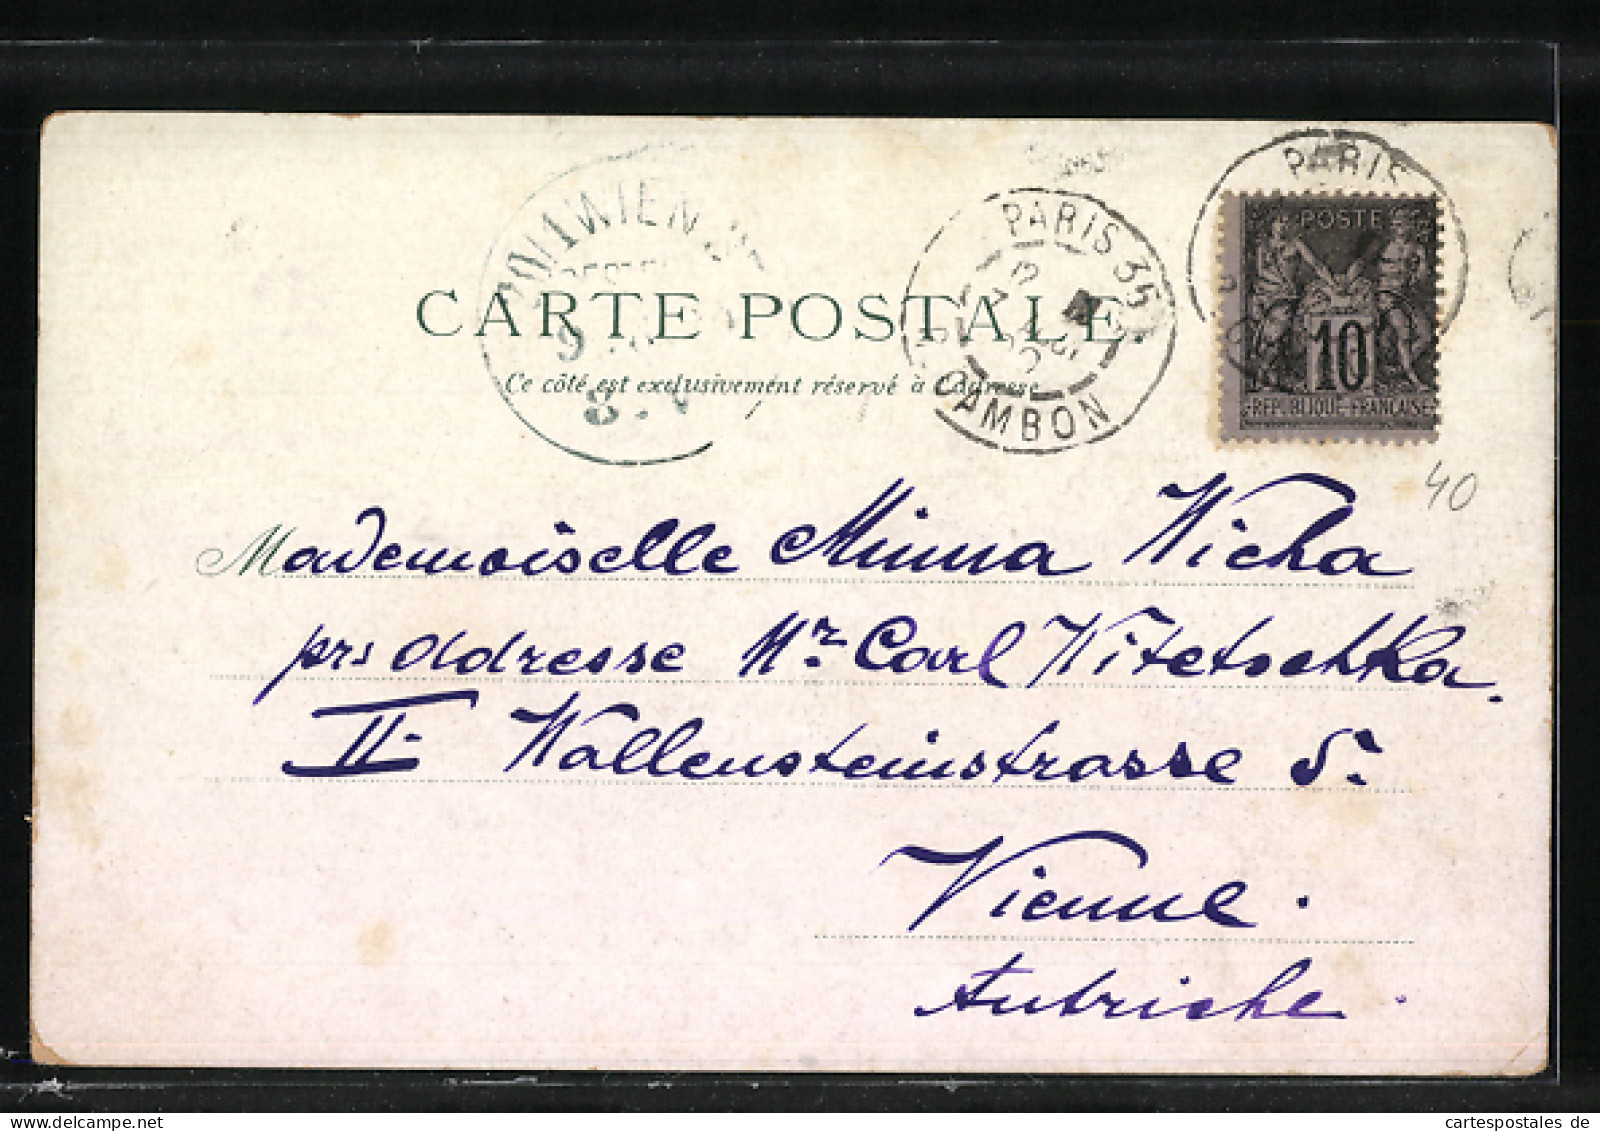 CARTE POSTALE.
Ce côté est exclusivement réservé à l'adresse
WIEN
8. V
PARIS 35
CAMBON
PARIS
POSTE
10
REPUBLIQUE FRANÇAISE
40
Mademoiselle Minna Wicha
prs adresse Mr. Carl Witetschka.
II. Wallensteinstrasse 5.
Vienne.
Autriche.
cartespostales de